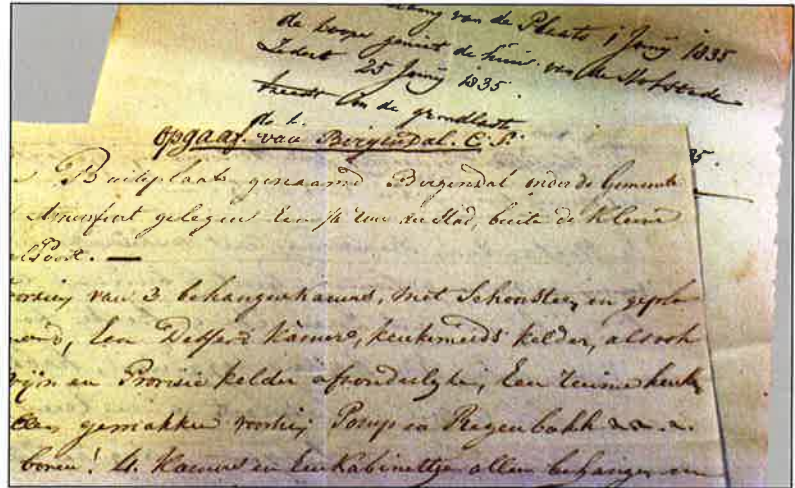 van de Plaats 1 Junij 1835
de kooper geniet de huur van de Hofstede
Zedert 25 Junij 1835
treedt in de grondlasten
Opgaaf van Bergendal. C.P.
Buitiplaats genaamd Bergendal onder de Gemeente
Amersfort gelegen Een ¼ uur der Stad, buite de Kleine
Poort. —
van 3 behangen kamers, met Schoorsteen, en
Een Kamer, keukemeids kelder, alsook
wijn en Provisie kelder afsonderlyk; Een ruime keuk
gemakken Pomp en Regenbakk
boven! 4. Kamers en Een Kabinettje allen behangen en